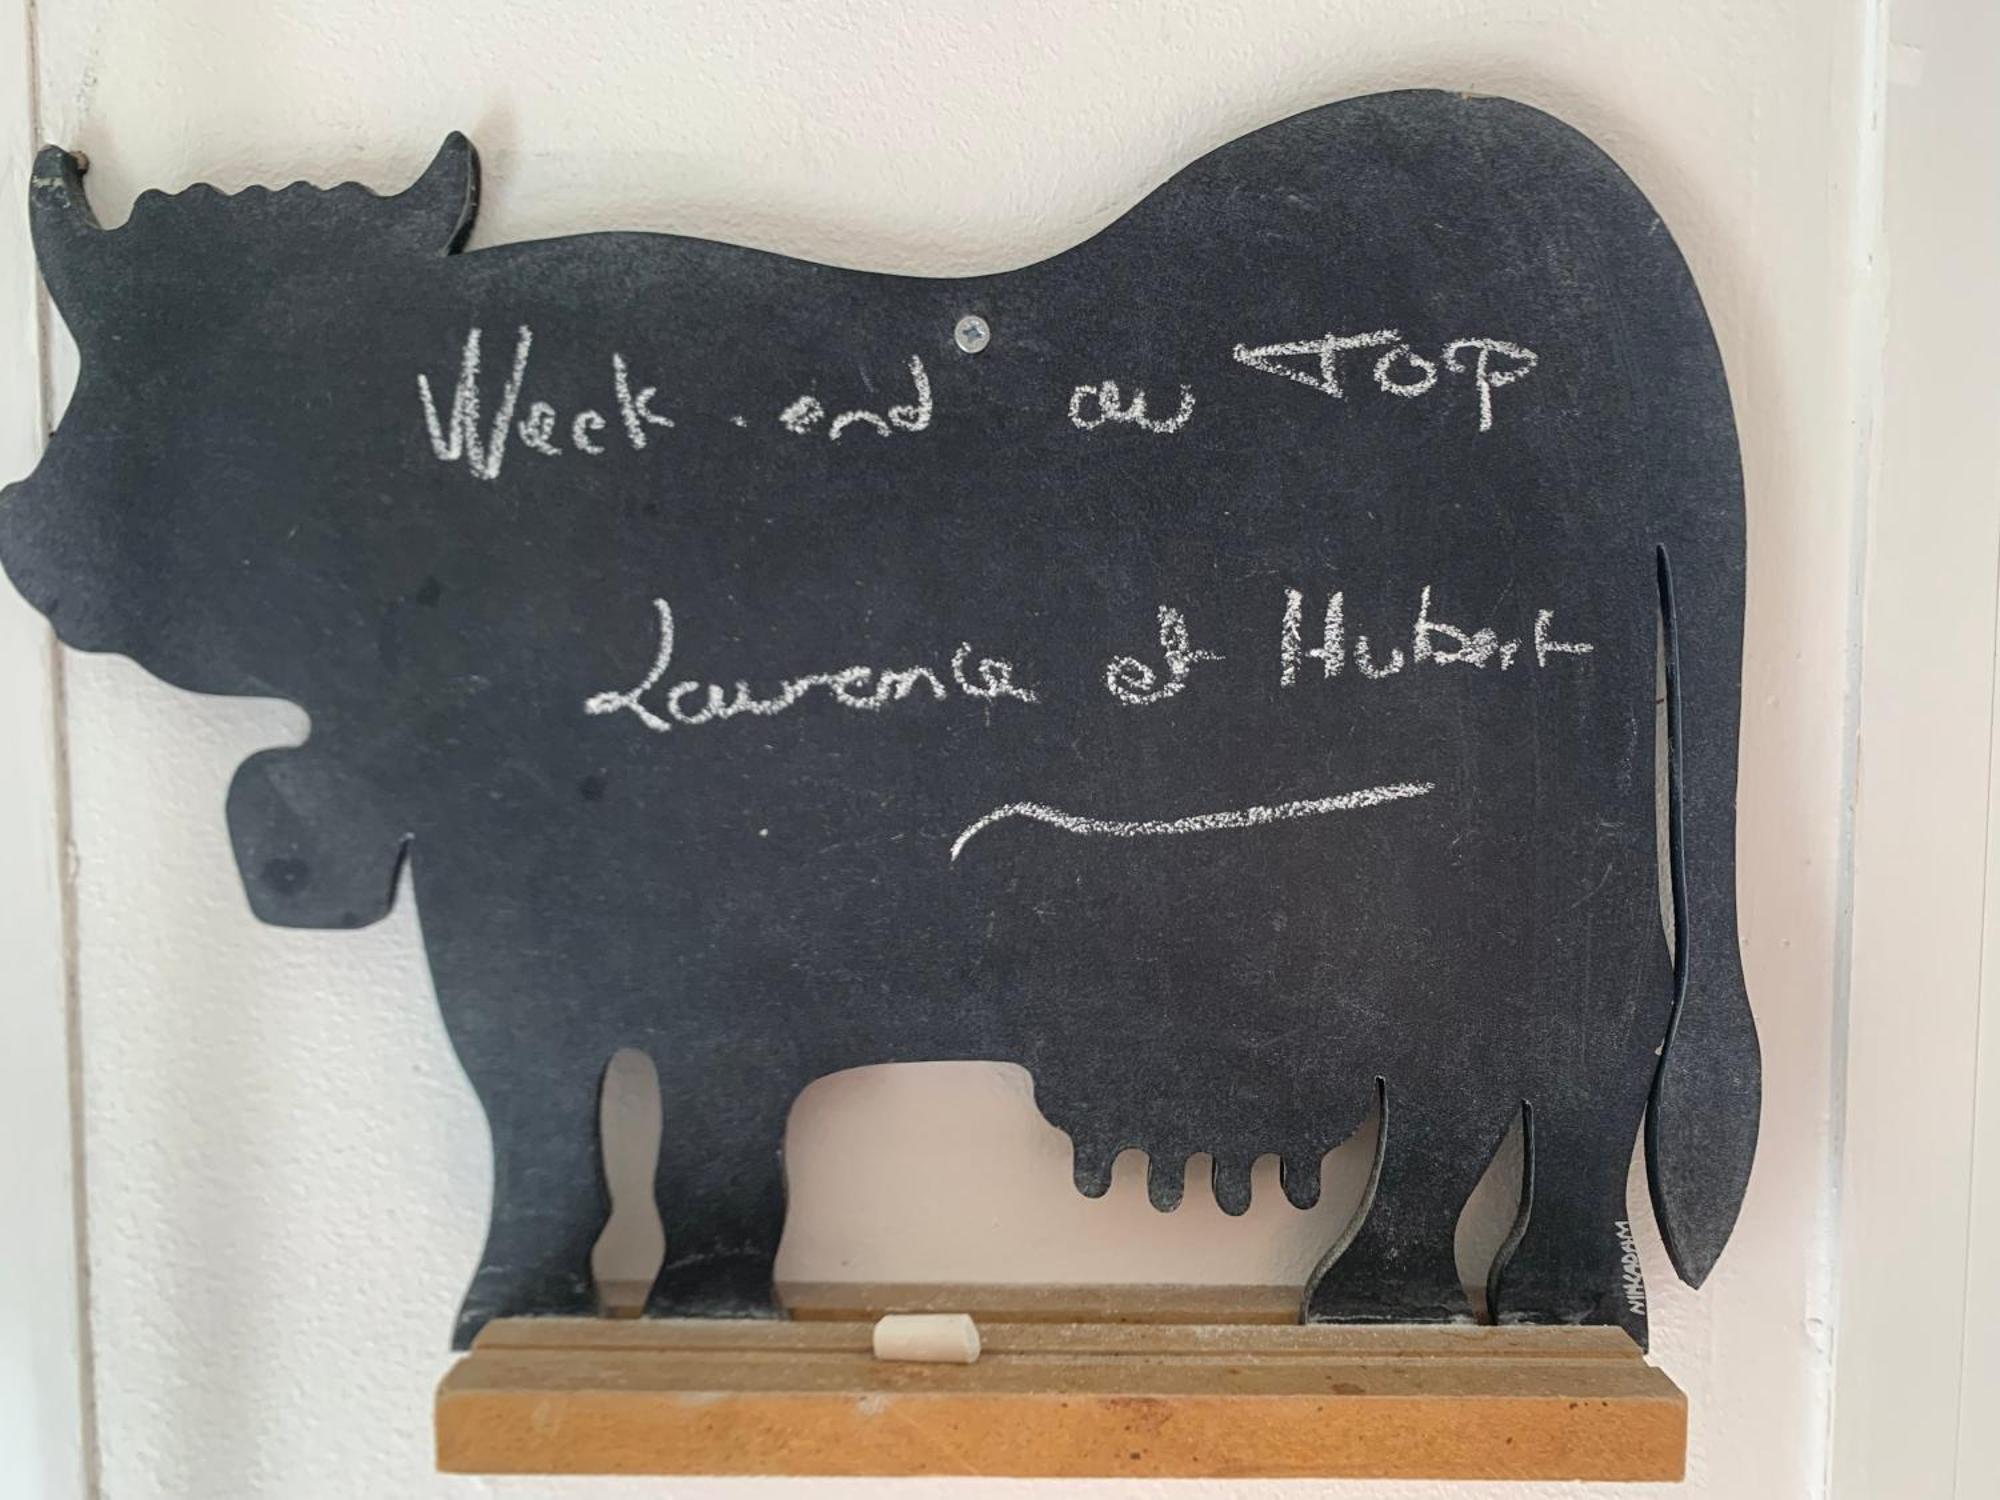 Week-end au TOP
Laurence et Hubert
NINKADAM